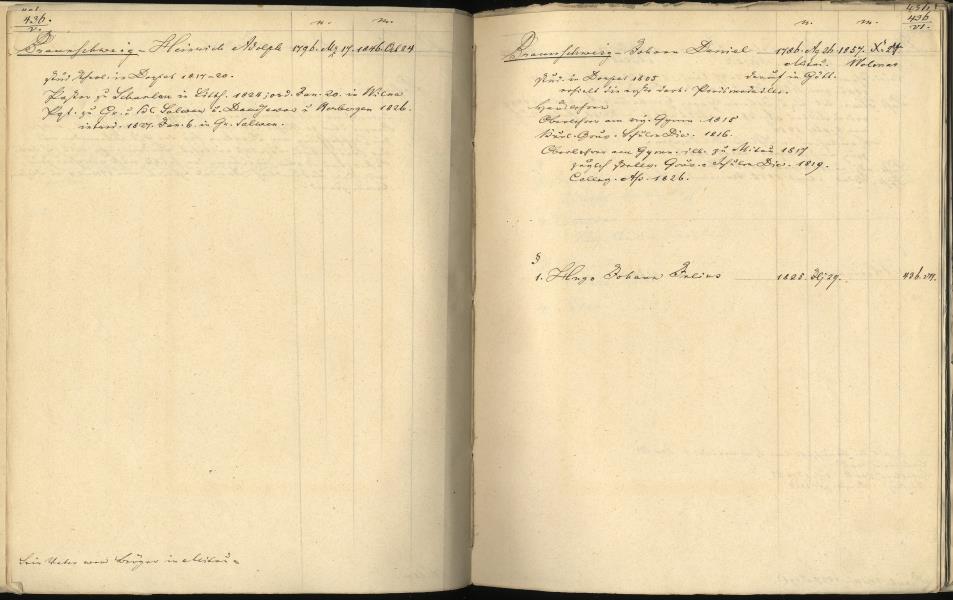 436.
v.
n. m.
Braunschweig - Heinrich Adolph 1796. Mz 17. 1846. Oct 24
stud. theol. in Dorpat 1817-20.
Pastor zu Schaulen in Litth. 1824, ord. Jan. 20. in Wilna
Past. zu Gr. u. Kl. Salwen u. Daudsewas u. Herbergen 1826.
introd. 1827. Jan. 6. in Gr. Salwen.
Sein Vater war Bürger in Mitau
436
VI.
n. m.
Braunschweig - Johann Daniel 1786. 26 1857. X.
Mitau. Wolmar
stud. in Dorpat 1805 darauf in Gött.
erhielt die erste Preismedaille.
Hauslehrer
Oberlehrer am Gymn. 1815
Kurl. Gouv. Schulen Dir. 1816.
Oberlehrer am Gymn. ill. zu Mitau 1817
zugleich stellv. Gouv. Schulen Dir. 1819.
Colleg. Ass. 1826.
§
1. Hugo Johann Julius 1825. 29. 436. VII.